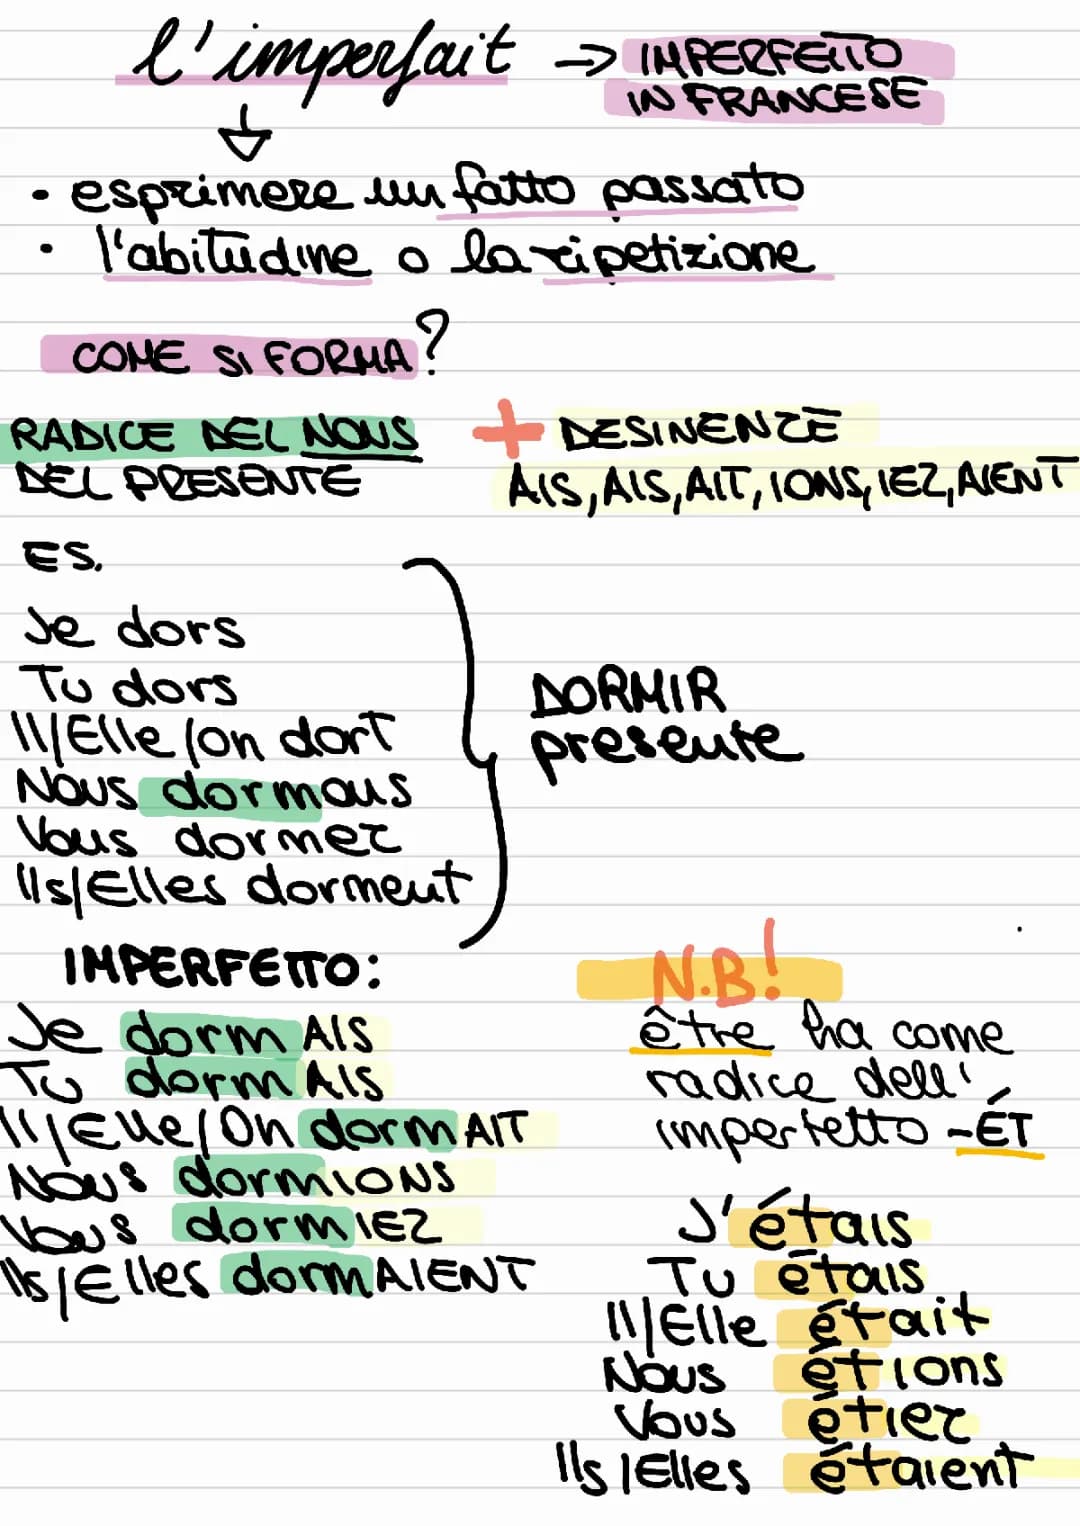 l'imparfait → IMPERFETTO
IN FRANCESE
• esprimere un fatto passato
• l'abitudine o la ripetizione
COME SI FORMA?
RADICE DEL NOUS + DESINENZE
DEL PRESENTE AIS, AIS, AIT, IONS, IEZ, AIENT
ES.
Je dors
Tu dors
Il/Elle/on dort
Nous dormons
Vous dormez
Ils/Elles dorment
DORMIR
presente
IMPERFETTO:
Je dormAIS
Tu dormAIS
Il/Elle/On dormAIT
Nous dormIONS
Vous dormIEZ
Ils/Elles dormAIENT
N.B!
être ha come
radice dell'
imperfetto -ÉT
J'étais
Tu étais
Il/Elle était
Nous étions
Vous étiez
Ils/Elles étaient